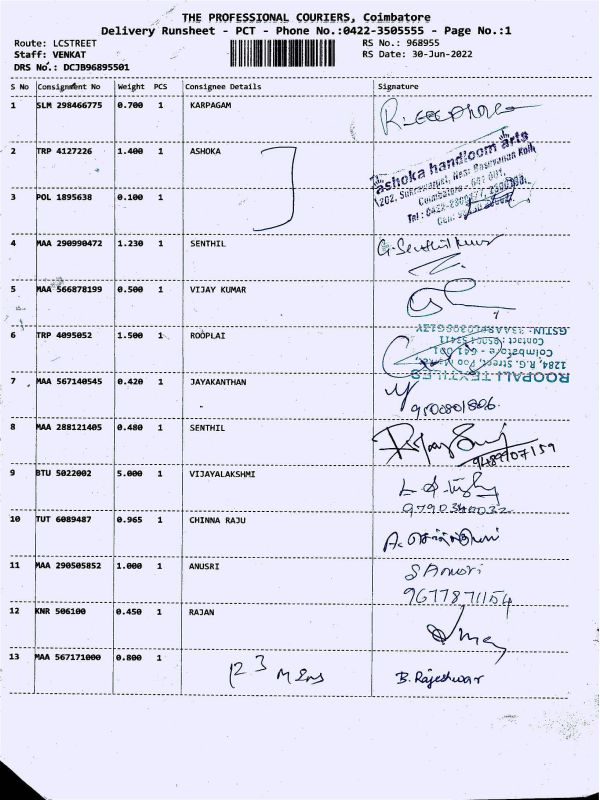 THE PROFESSIONAL COURIERS, Coimbatore
Delivery Runsheet - PCT - Phone No.:0422-3505555 - Page No.:1
Route: LCSTREET RS No.: 968955
Staff: VENKAT RS Date: 30-Jun-2022
DRS No.: DCJB96895501
S No Consignment No Weight PCS Consignee Details Signature
1 SLM 298466775 0.700 1 KARPAGAM
2 TRP 4127226 1.400 1 ASHOKA
ashoka handloom arts
3 POL 1895638 0.100 1
4 MAA 290990472 1.230 1 SENTHIL G. Senthil kumar
5 MAA 566878199 0.500 1 VIJAY KUMAR
6 TRP 4095052 1.500 1 ROOPLAI
ROOPALI TEXTILES
1284, R.G. Street,
Coimbatore - 641 001.
7 MAA 567140545 0.420 1 JAYAKANTHAN
8 MAA 288121405 0.480 1 SENTHIL
9487707159
9 BTU 5022002 5.000 1 VIJAYALAKSHMI
9790340032
10 TUT 6089487 0.965 1 CHINNA RAJU
11 MAA 290505852 1.000 1 ANUSRI S Anusri
9677871154
12 KNR 506100 0.450 1 RAJAN
13 MAA 567171000 0.800 1 B. Rajeshwar